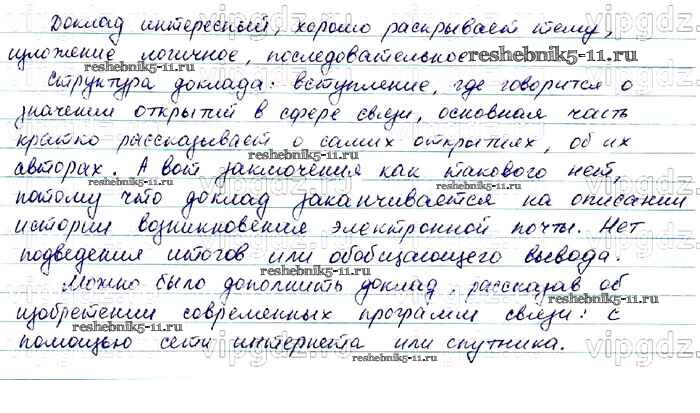 Доклад интересный, хорошо раскрывает тему,
изложение логичное, последовательное
reshebnik5-11.ru
reshebnik5-11.ru
Структура доклада: вступление, где говорится о
значении открытий в сфере связи, основная часть
reshebnik5-11.ru
кратко рассказывает о самих открытиях, об их
reshebnik5-11.ru
авторах. А вот заключения как такового нет,
reshebnik5-11.ru
потому что доклад заканчивается на описании
vipgdz
истории возникновения электронной почты. Нет
подведения итогов или обобщающего вывода.
reshebnik5-11.ru
Можно было дополнить доклад, рассказав об
reshebnik5-11.ru
изобретении современных программ связи: с
reshebnik5-11.ru
помощью сети интернета или спутника.
vipgdz
reshebnik5-11.ru